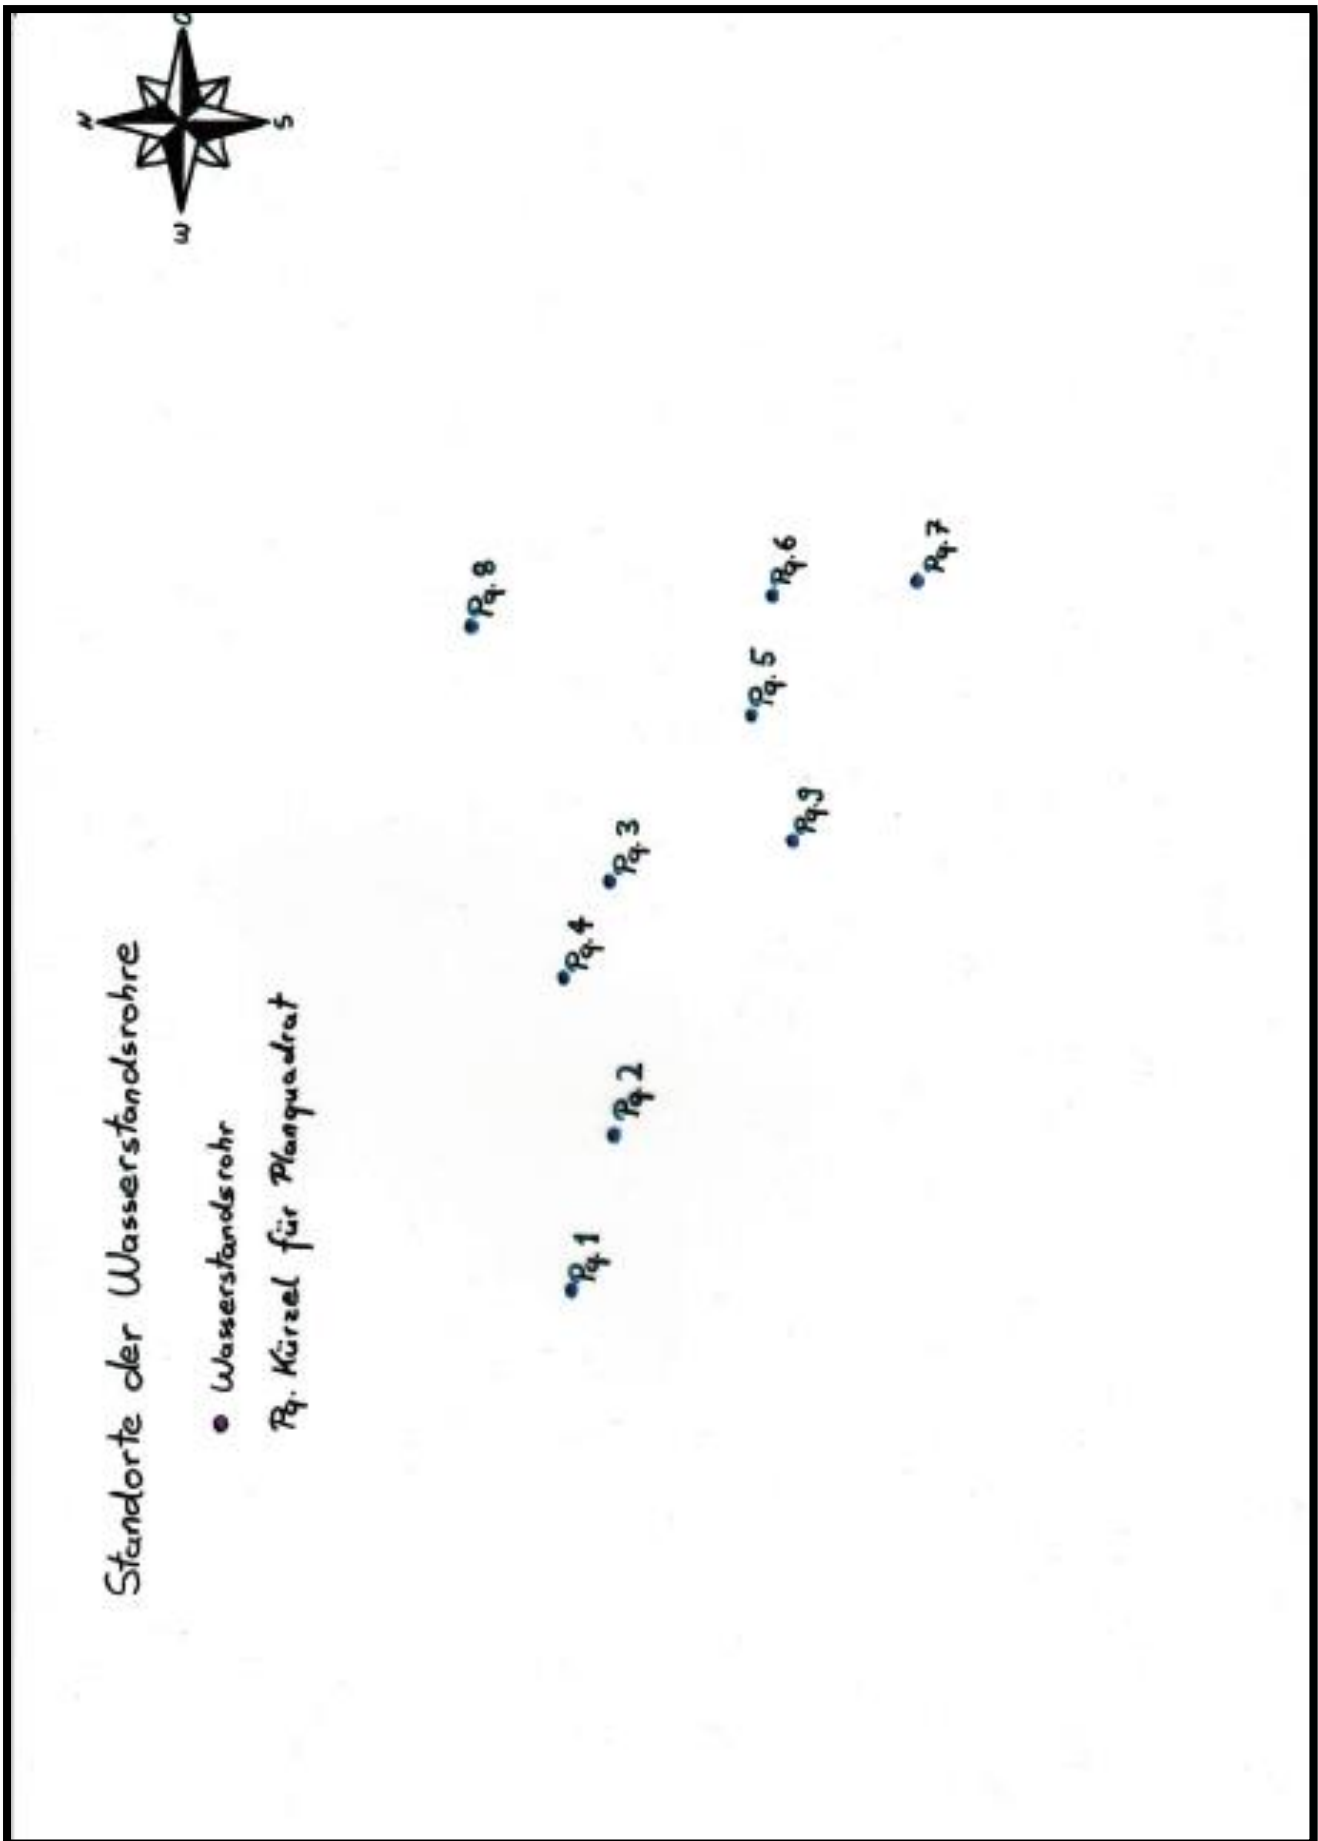 Standorte der Wasserstandsrohre
Wasserstandsrohr
Pq. Kürzel für Planquadrat
N
O
S
W
Pq. 8
Pq. 4
Pq. 1
Pq. 3
Pq. 2
Pq. 5
Pq. 6
Pq. 9
Pq. 7